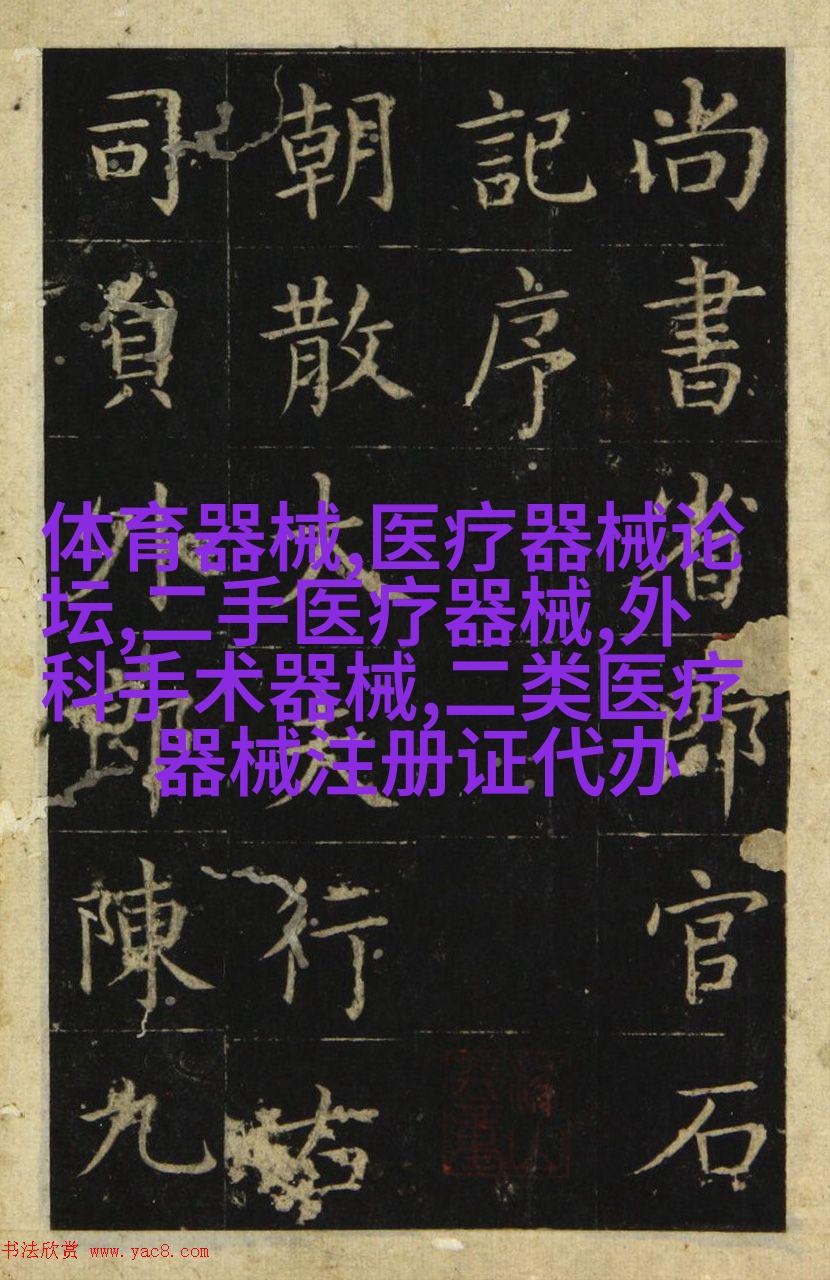 尚書省郎官石
記序
朝散大夫行右
司員外郎陳九
体育器械,医疗器械论
坛,二手医疗器械,外
科手术器械,二类医疗
器械注册证代办
书法欣赏 www.yac8.com